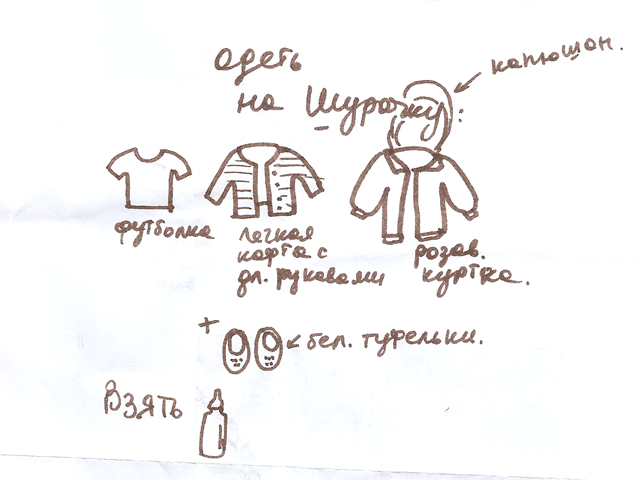 одеть
на Шурочку:
капюшон.
футболка
легкая
кофта с
дл. рукавами
розов.
куртка.
+
бел. туфельки.
Взять